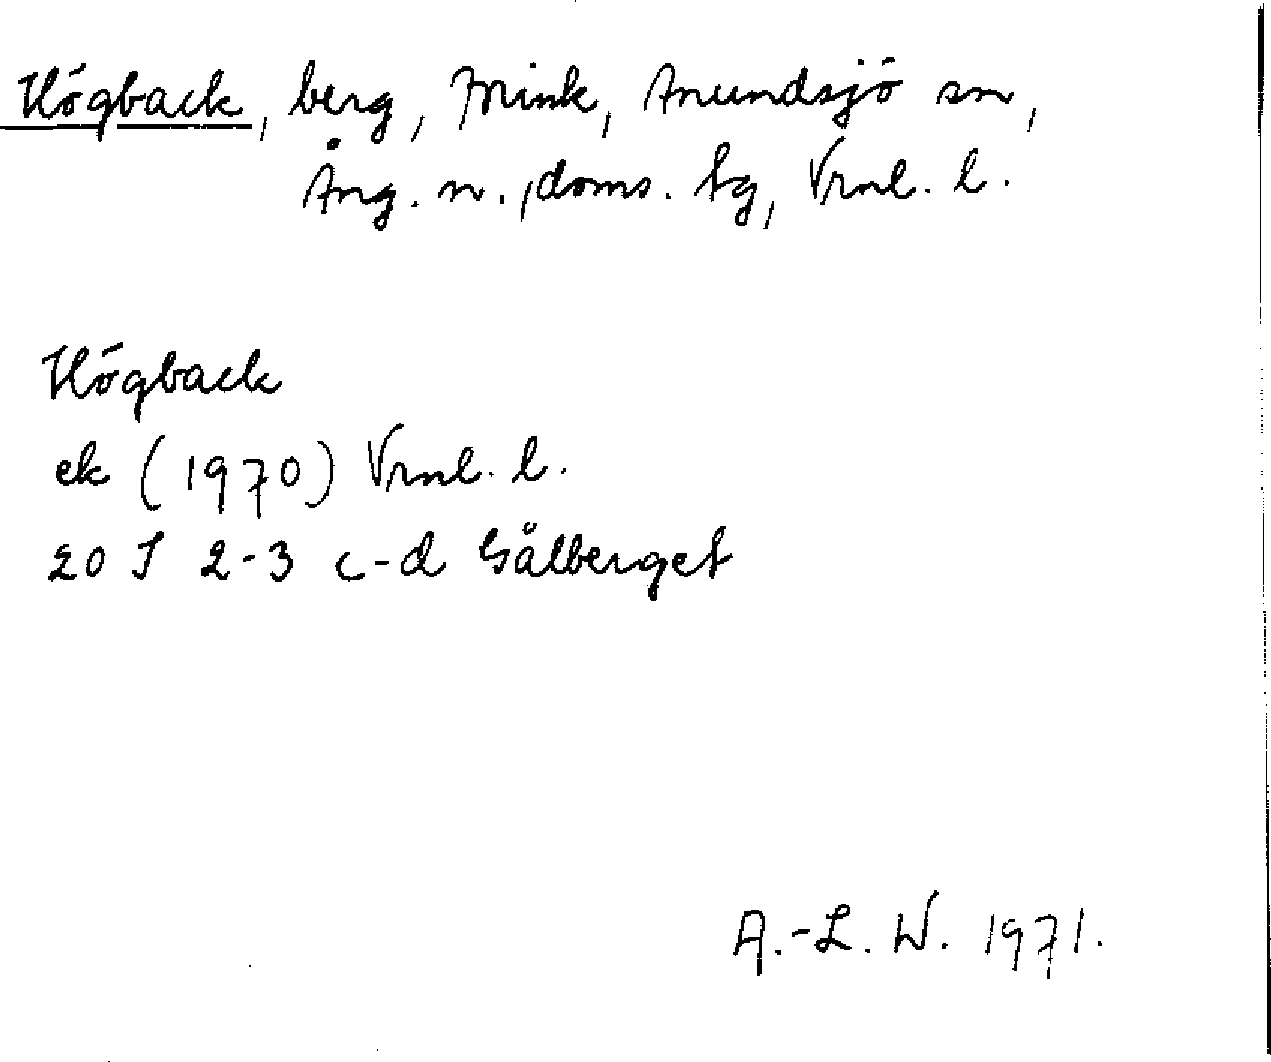 Högback, berg, Mink, Anundsjö sn,
Ång. n., doms. tg, Vrnl. l.
Högback
ek (1970) Vrnl. l.
20 J 2-3 c-d Gålberget
A.-L. W. 1971.